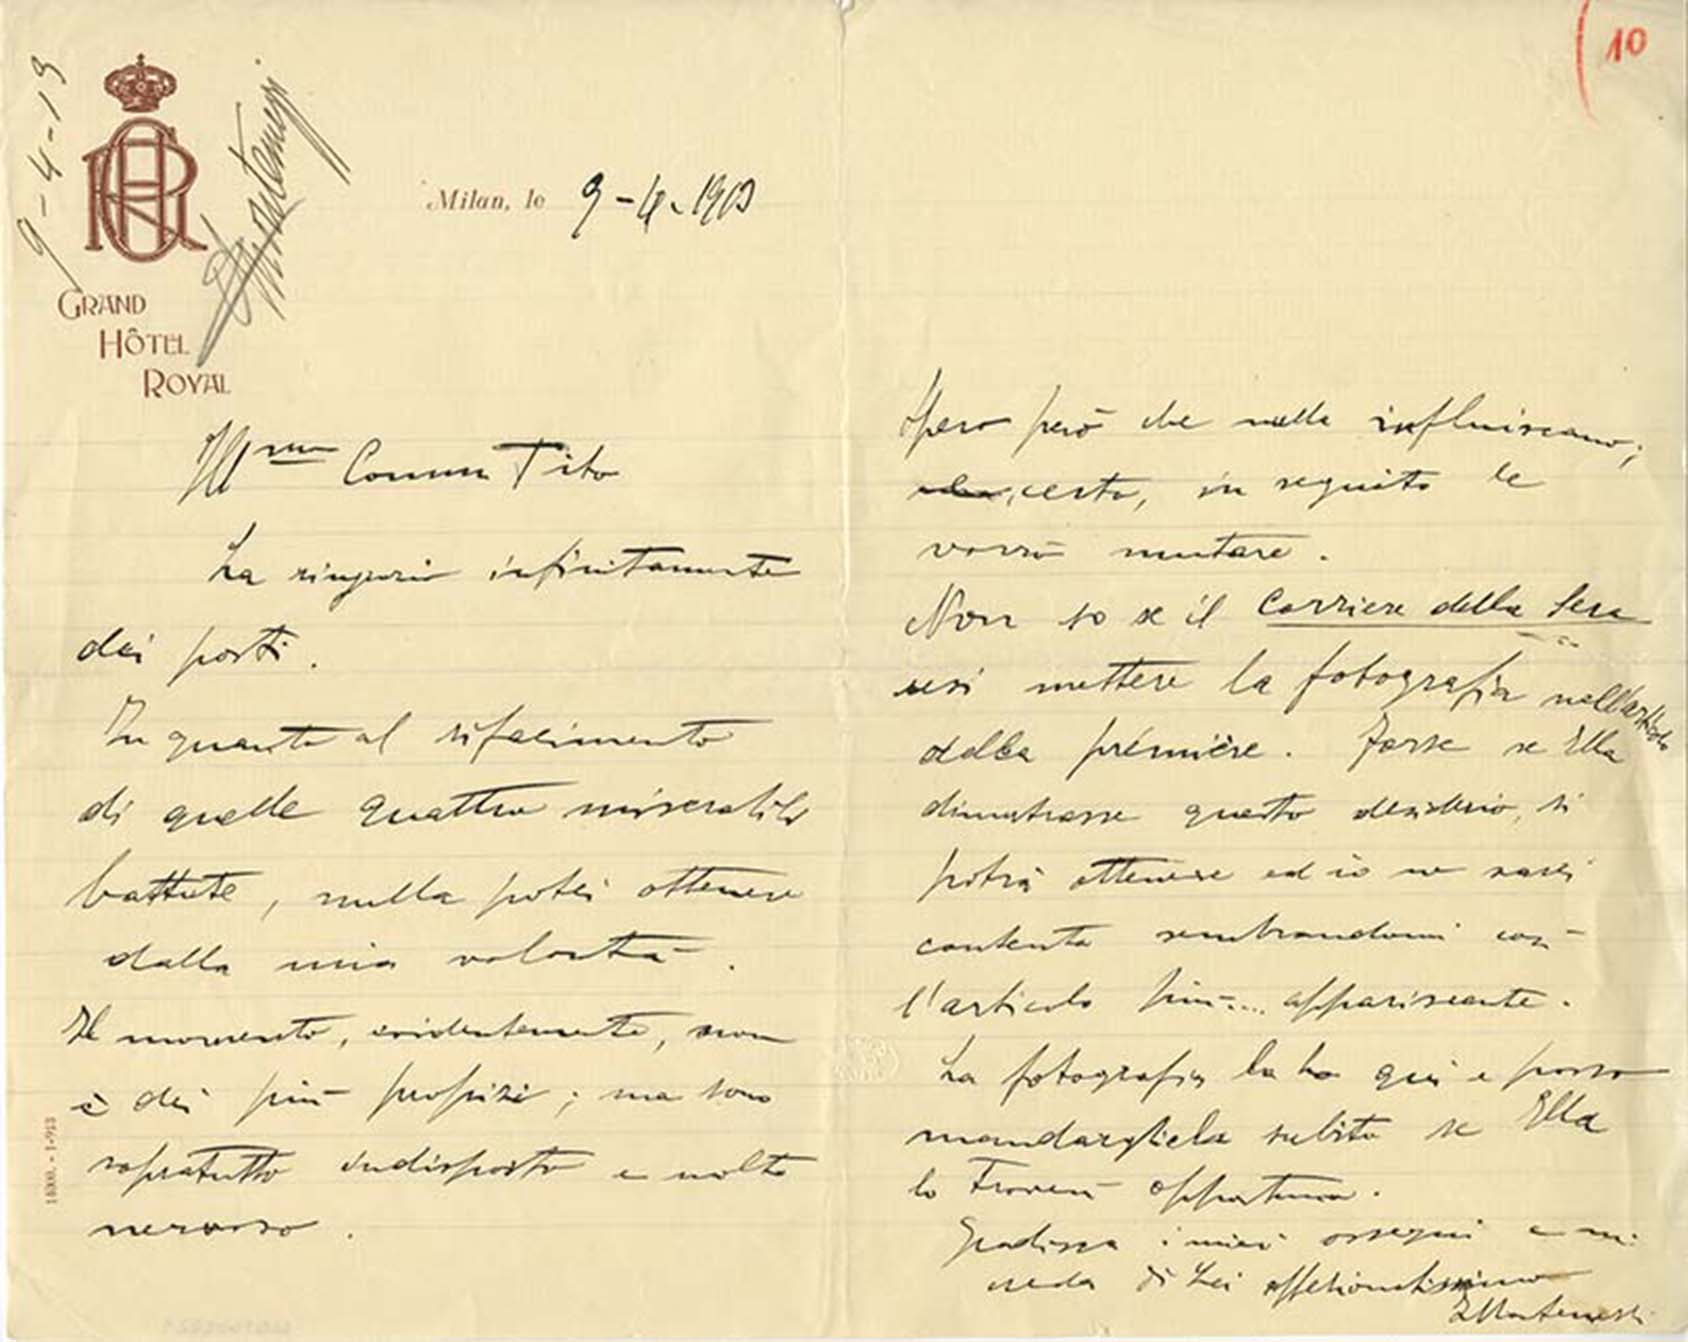 9-4-13
GRAND
HÔTEL
ROYAL
Milan, le 9-4-1913
Ill.mo Comm Tito
La ringrazio infinitamente
dei posti.
In quanto al rifacimento
di quelle quattro miserabili
battute, nulla potei ottenere
dalla mia volontà.
Il momento, evidentemente, non
è dei più propizi; ma sono
sopratutto indisposto e molto
nervoso.
18000. - 1-913
10
Spero però che nulla influiscano;
certo, in seguito le
vorrò mutare.
Non so se il Corriere della Sera
usi mettere la fotografia nell'articolo
della première. Forse se Ella
dimostrasse questo desiderio, si
potrà ottenere ed io ne sarei
contento sembrandomi così
l'articolo più.... appariscente.
La fotografia la ho qui e posso
mandargliela subito se Ella
lo troverà opportuno.
Gradisca i miei ossequi e mi
creda di Lei affezionatissimo
I Montemezzi